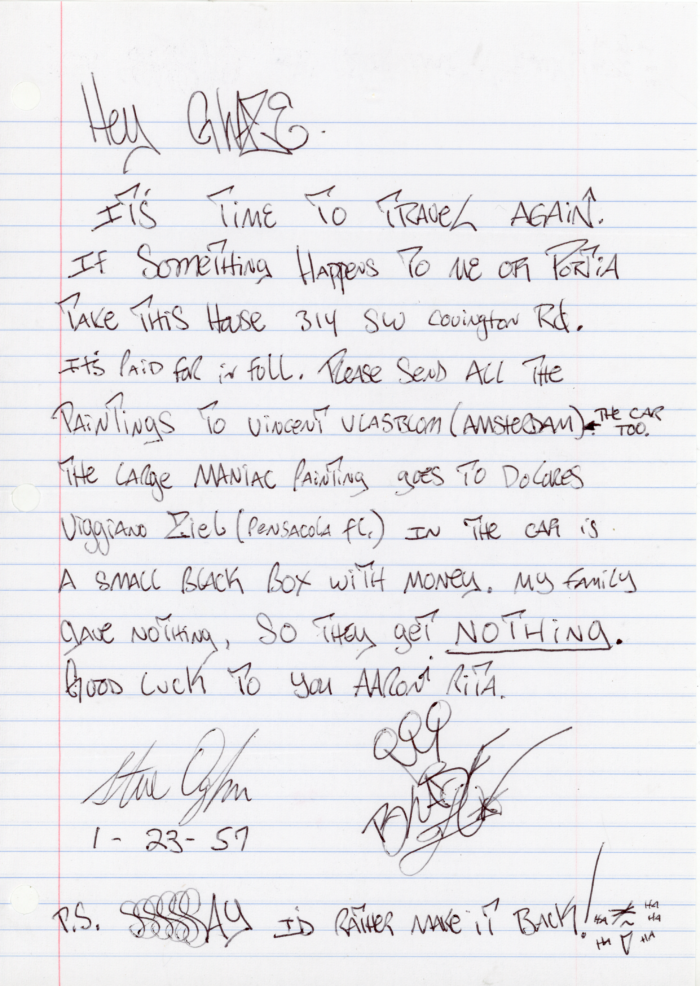 Hey GWIZE.
IT'S TIME TO TRAVEL AGAIN.
IF SOMETHING HAPPENS TO ME OR PORTIA
TAKE THIS HOUSE 314 SW COVINGTON Rd.
IT'S PAID FOR IN FULL. PLEASE SEND ALL THE
PAINTINGS TO VINCENT VLASBLOM (AMSTERDAM) THE CAR
TOO.
THE LARGE MANIAC PAINTING goes TO DOLORES
VIGGIANO ZIEL (PENSACOLA FL.) IN THE CAR IS
A SMALL BLACK BOX WITH MONEY. MY FAMILY
GAVE NOTHING, SO THEY get NOTHING.
GOOD LUCK TO YOU AARON RITA.
Steve
1-23-57
P.S. SSSSSAY I'D RATHER MAKE IT BACK!
HA HA
HA
HA HA